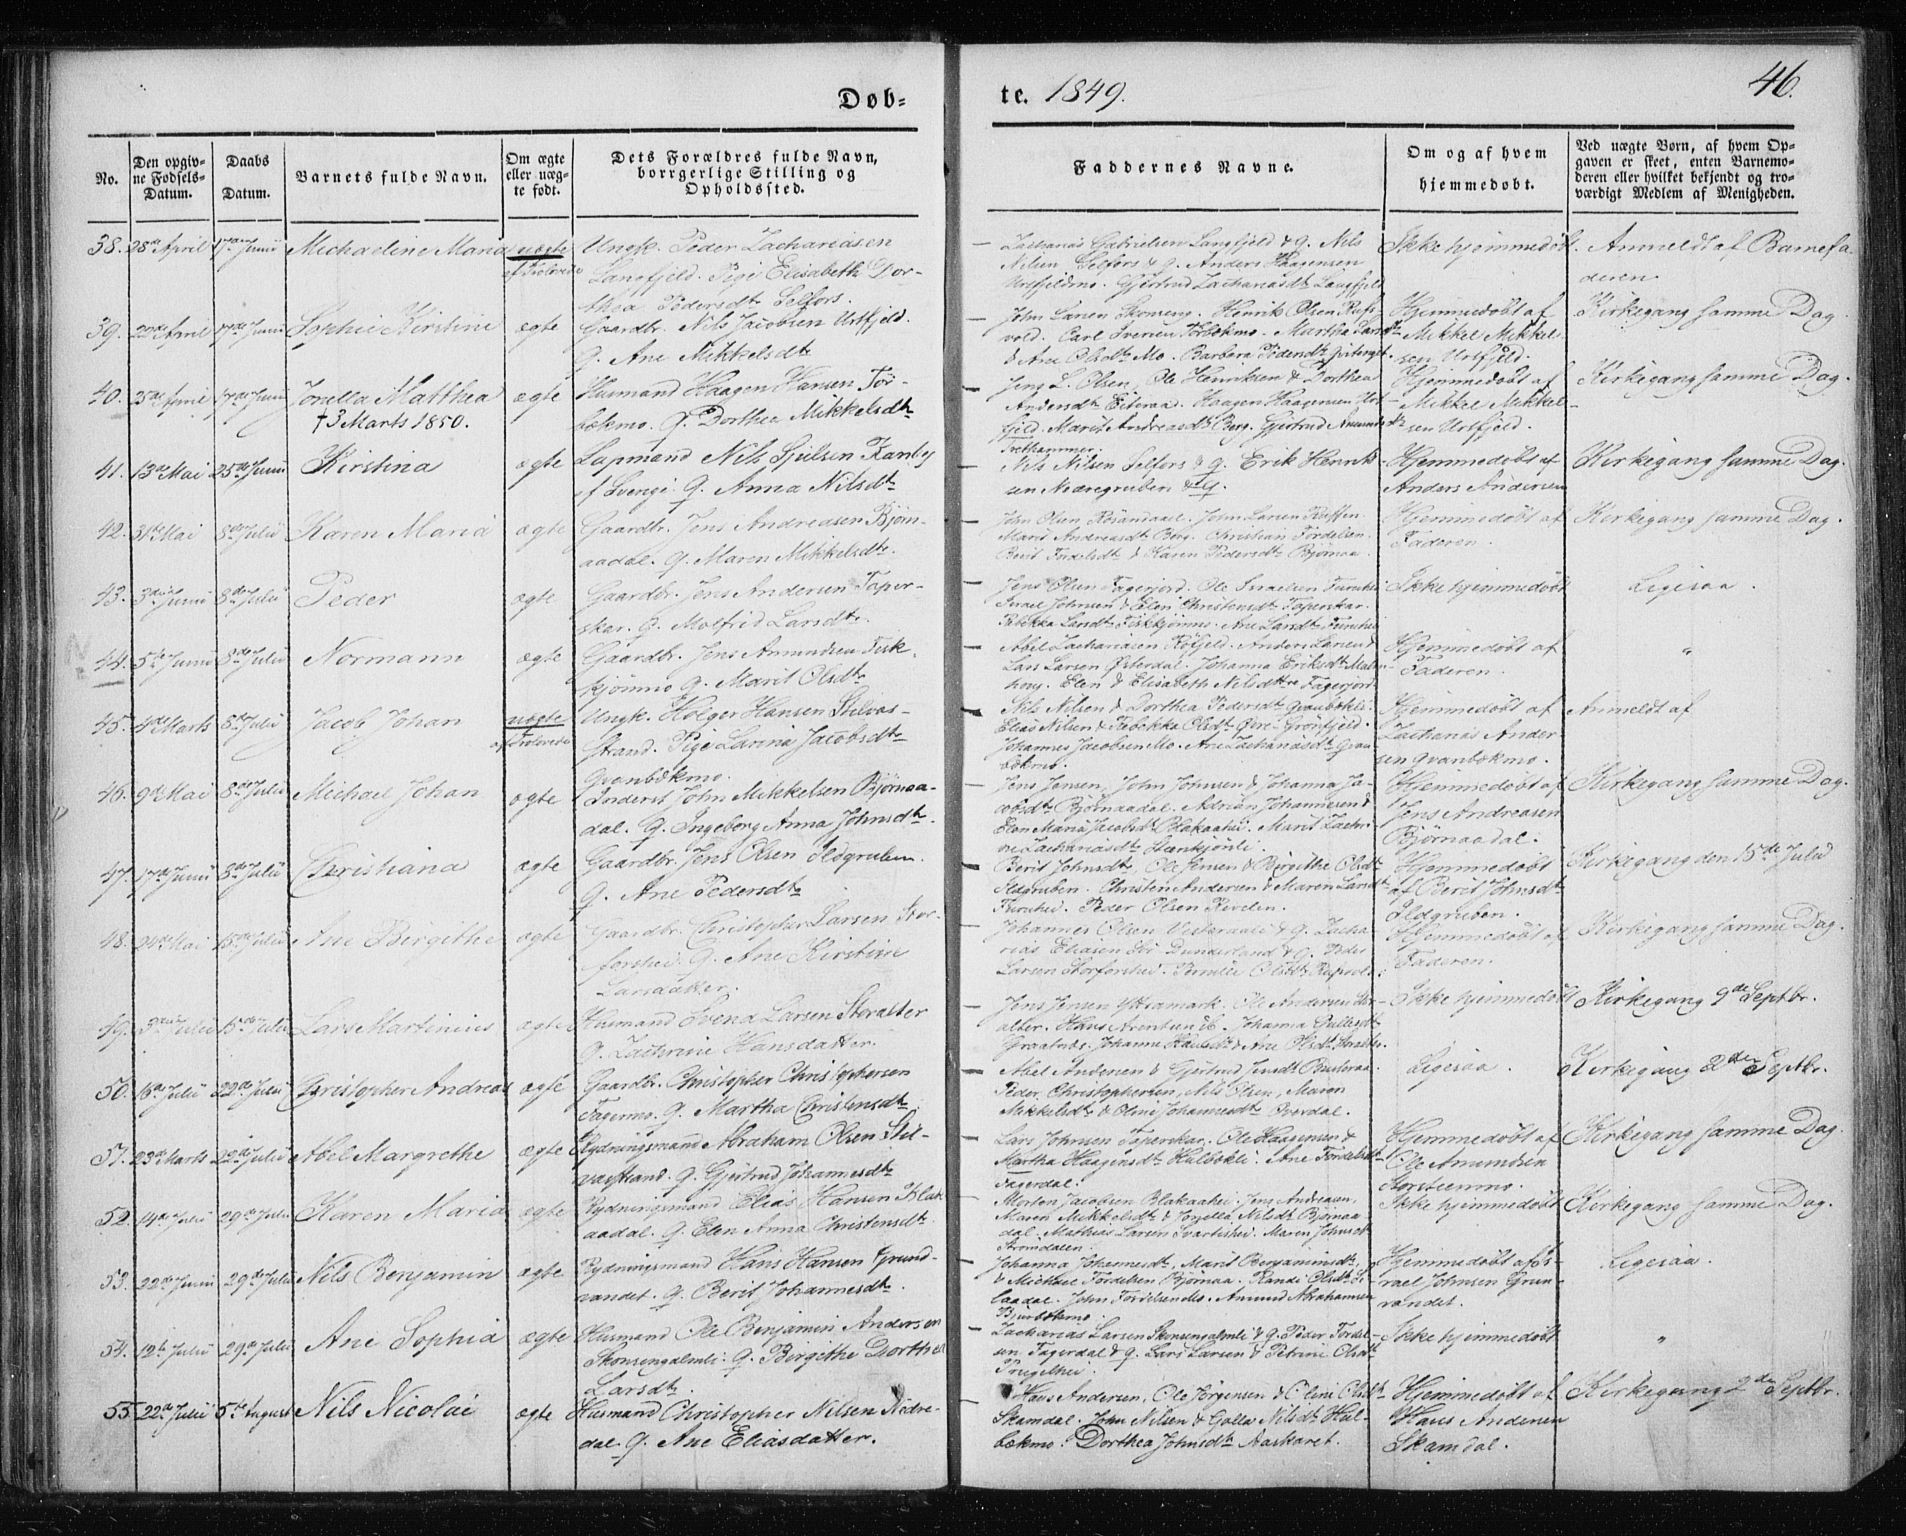 Døb-
te. 1849.
46.
No.
Den opgiv-
ne Fødsels-
Datum.
Daabs
Datum.
Barnets fulde Navn.
Om ægte
eller uæg-
te født.
Dets Forældres fulde Navn,
borrgerlige Stilling og
Opholdssted.
Faddernes Navne.
Om og af hvem
hjemmedøbt.
Ved uægte Børn, af hvem Op-
gaven er skeet, enten Barnemo-
deren eller hvilket bekjendt og tro-
værdigt Medlem af Menigheden.
38. 28de April 17de Junii Michaeline Maria uægte
af Trolovede
Ungk. Peder Zachariasen
Langfjeld. Pige Elisabeth Dor-
thea Pedersdtr Selfors.
Zacharias Gabrielsen Langfjeld & Q. Nils
Nilsen Selfors & Q. Anders Haagensen
Urtfjeldmo. Gjertrud Zachariasdtr Langfjeld
Ikke hjemmedøbt.
Anmeldt af Barnefa-
deren
39. 22de April 17de Junii Sophie Kirstine ægte
Gaardbr. Nils Jacobsen Urtfjeld.
Q. Ane Mikkelsdtr
John Larsen Skonseng. Henrik Olsen Rufs-
vold. Carl Iversen . Martha Larsdtr
& Ane Olsdtr Mo. Barbara Pedersdtr
Hjemmedøbt af
Mikkel Mikkel-
sen Urtfjeld.
Kirkegang samme Dag.
40. 3de April 17de Junii Jonella Matthea
† 3 Marts 1850.
ægte
Husmand Haagen Hansen Tør-
bækmo. Q. Dorthea Mikkelsdtr
Jens L. Olsen, Ole Henriksen & Dorthea
Andersdtr Eiteraa. Haagen Haagensen Urt-
fjeld. Marit Andreasdtr Berg. Gjertrud Amundsdtr
Hjemmedøbt af
Mikkel Mikkel-
sen Urtfjeld.
Kirkegang samme Dag.
41. 13de Mai 25de Junii Kirstina ægte
Lapmand Nils Sjulsen Ranbyn
af Sverrig Q. Anna Nilsdtr
Nils Nilsen Selfors & Q. Erik Henrik-
sen Nedregruben & Q.
Hjemmedøbt af
Anders Andersen
Kirkegang samme Dag.
42. 31te Mai 8de Julii Karen Maria ægte
Gaardbr. Jens Andreasen Bjørn-
aadal. Q. Maren Mikkelsdtr.
John Olsen Røsandaal. John Larsen
Marit Andreasdtr Berg. Christian Fordelsen.
Berit Fordelsdtr & Karen Pedersdtr Bjørnaa.
Hjemmedøbt af
Faderen.
Kirkegang samme Dag.
43. 3die Junii 8de Julii Peder ægte
Gaardbr. Jens Andersen Taper-
skar. Q. Molfrid Larsdtr.
Jens Olsen Fagerjord. Ole Israelsen Furuhei
Israel Johnsen & Elen Christensdtr Taperskar.
Rebekka Larsdtr Fiskkjønmo. Ane Larsdtr Furuhei
Ikke hjemmedøbt
Ligesaa.
44. 5te Junii 8de Julii Normann ægte
Gaardbr. Jens Amundsen Fisk-
kjønmo Q. Marit Olsdtr
Abel Zachariasen Røfjeld. Anders Larsen &
Lars Larsen Østerdal. Johanna Eriksdtr Malm-
houg. Elen & Elisabeth Nilsdtre Fagerjord
Hjemmedøbt af
Faderen.
"
45. 4de Marts 8de Julii Jacob Johan uægte
af Trolovede
Ungk. Holger Hansen Stilvas-
strand. Pige Larina Jacobsdtr
Qvanbækmo.
Nils Nilsen & Dorthea Pedersdtr Qvanbækli.
Elias Nilsen & Rebekka Olsdtr Øvre-Grønfjeld.
Johannes Jacobsen Mo. Ane Zachariasdtr Qvan-
bækmo.
Hjemmedøbt af
Zacharias Ander
sen Qvanbækmo.
Anmeldt af
46. 9de Mai 8de Julii Michael Johan ægte
Inderst John Mikkelsen Bjørnaa-
dal. Q. Ingeborg Anna Johnsdtr.
Jens Jensen, John Johnsen & Johanna Ja-
cobsdtr Bjørnaadal. Adrian Johannesen &
Elen Maria Jacobsdtr Blakaahei. Marit Zachri-
ne Zachariasdtr
Hjemmedøbt af
Jens Andreasen
Bjørnaadal.
Kirkegang samme Dag.
47. 17de Junii 8de Julii Christiana ægte
Gaardbr. Jens Olsen Ildgruben.
Q. Ane Pedersdtr
Berit Johnsdtr, Ole Jensen & Birgithe Olsdtr
Ildgruben. Christen Andersen & Maren Larsdtr
Furuhei. Peder Olsen Revelen.
Hjemmedøbt
af Berit Johnsdtr
Ildgruben.
Kirkegang den 15de Julii
48. 24de Mai 15de Julii Ane Birgithe ægte
Gaardbr. Christopher Larsen Stor-
forshei. Q. Ane Kirstine
Larsdatter.
Johannes Olsen Vesteraali & Q. Zacha-
rias Eliasen Bri Dunderland & Q. Peder
Larsen Storforshei. Pernille Olsdtr Rufsvold.
Hjemmedøbt af
Faderen.
Kirkegang samme Dag.
49. 3die Julii 15de Julii Lars Martinius ægte
Husmand Svend Larsen Storalter
Q. Zachrine Hansdatter.
Jens Jensen Ytteramark. Ole Andersen Stor-
alter. Hans Arentsen ib. Johanna Gullesdtr
Johanne Hansdtr & Ane Olsdtr Storalter.
Ikke hjemmedøbt
Kirkegang 9de Septbr.
50. 16de Julii 22de Julii Christopher Andreas ægte
Gaardbr. Christopher Christophersen
Fagermo. Q. Martha Christensdtr
Abel Andersen & Gjertrud Jensdtr Bustneaa.
Peder Christophersen, Nils Olsen, Maren
Mikkelsdtr & Oline Johannesdtr Overdal.
Ligesaa.
Kirkegang 2den Septbr.
51. 23de Marts 22de Julii Abel Margrethe ægte
Rydningsmand Abraham Olsen Stil-
vasstrand. Q. Gjertrud Johannesdtr
Lars Johnsen Taperskar. Ole Haagensen &
Martha Haagensdtr Hulbækli. Ane Fordelsdtr
Fagerdal.
Hjemmedøbt af
Ole Amundsen
Storsteenmo.
Kirkegang samme Dag.
52. 14de Julii 29de Julii Karen Maria ægte
Rydningsmand Elias Hansen Blak-
aadal. Q. Elen Anna Christensdtr
Morten Jacobsen Blakaahei. Jens Andreasen.
Maren Mikkelsdtr & Jorella Nilsdtr Bjørnaa
dal. Mathias Larsen Svartishei. Maren Johnsdtr
Strømdalen.
Ikke hjemmedøbt
Kirkegang samme Dag.
53. 22de Junii 29de Julii Nils Benjamin ægte
Rydningsmand Hans Hansen Grund-
vandet. Q. Berit Johannesdtr.
Johanna Johannesdtr, Marit Benjaminsdtr,
& Michael Fordelsen Bjørnaa. Randi Olsdtr Bl-
laadal. John Fordelsen Mo. Amund Abrahamsen
Bjørbækmo.
Hjemmedøbt af Is-
rael Johnsen Grun-
vandet.
Ligesaa.
54. 12te Julii 29de Julii Ane Sophia ægte
Husmand Ole Benjamin Andersen
Skonsengalmli. Q. Birgithe Dorthea
Larsdtr.
Zacharias Larsen Skonsengalmli & Q. Peder Fordel-
sen Fagerdal & Q. Lars Larsen & Petrine Olsdtr
Prægelhei.
Ikke hjemmedøbt
"
55. 22de Julii 5te August Nils Nicolai ægte
Husmand Christopher Nilsen Nedre-
dal. Q. Ane Eliasdatter.
Hans Andersen, Ole Jørgensen & Oline Olsdtr
Skamdal. John Nilsen & Golla Nilsdtr Hul-
bækmo. Dorthea Johnsdtr Aaskaret.
Hjemmedøbt af
Hans Andersen
Skamdal.
Kirkegang 2de Septbr.